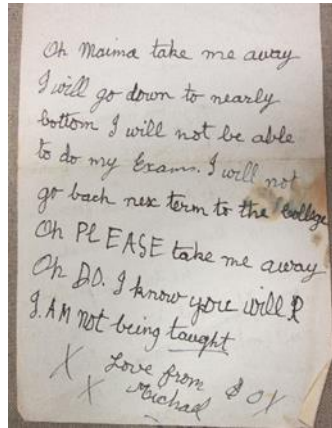 Oh Maima take me away
I will go down to nearly
bottom I will not be able
to do my Exams. I will not
go back nex term to the College
Oh PLEASE take me away
Oh DO. I know you will
I. AM not being taught
X Love from & OX
X Michael